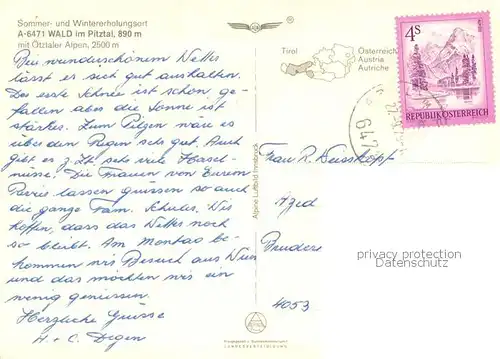 Sommer- und Wintererholungsort
A-6471 WALD im Pitztal, 890 m
mit Ötztaler Alpen, 2500 m
Bei wunderschönem Wetter
lässt es sich gut aushalten.
Der erste Schnee ist schon ge-
fallen aber die Sonne ist
stärker. Zum Pilzen wäre es
über den Regen sehr gut. Auch
gibt es z.Zt. sehr viele Hasel-
nüsse. Die Frauen von Eurem
lassen grüssen so auch
die ganze Fam. Schuler. Wir
hoffen, dass das Wetter noch
so bleibt. Am Montag be-
kommen wir Besuch aus Wien
und das möchten wir ein
wenig geniessen.
Herzliche Grüsse
H + C. Degen
Alpine Luftbild Innsbruck
Tirol
Österreich
Austria
Autriche
4S
REPUBLIK ÖSTERREICH
647
Frau R. Weisskopf
Azid
Bruderh
4053
privacy protection
Datenschutz